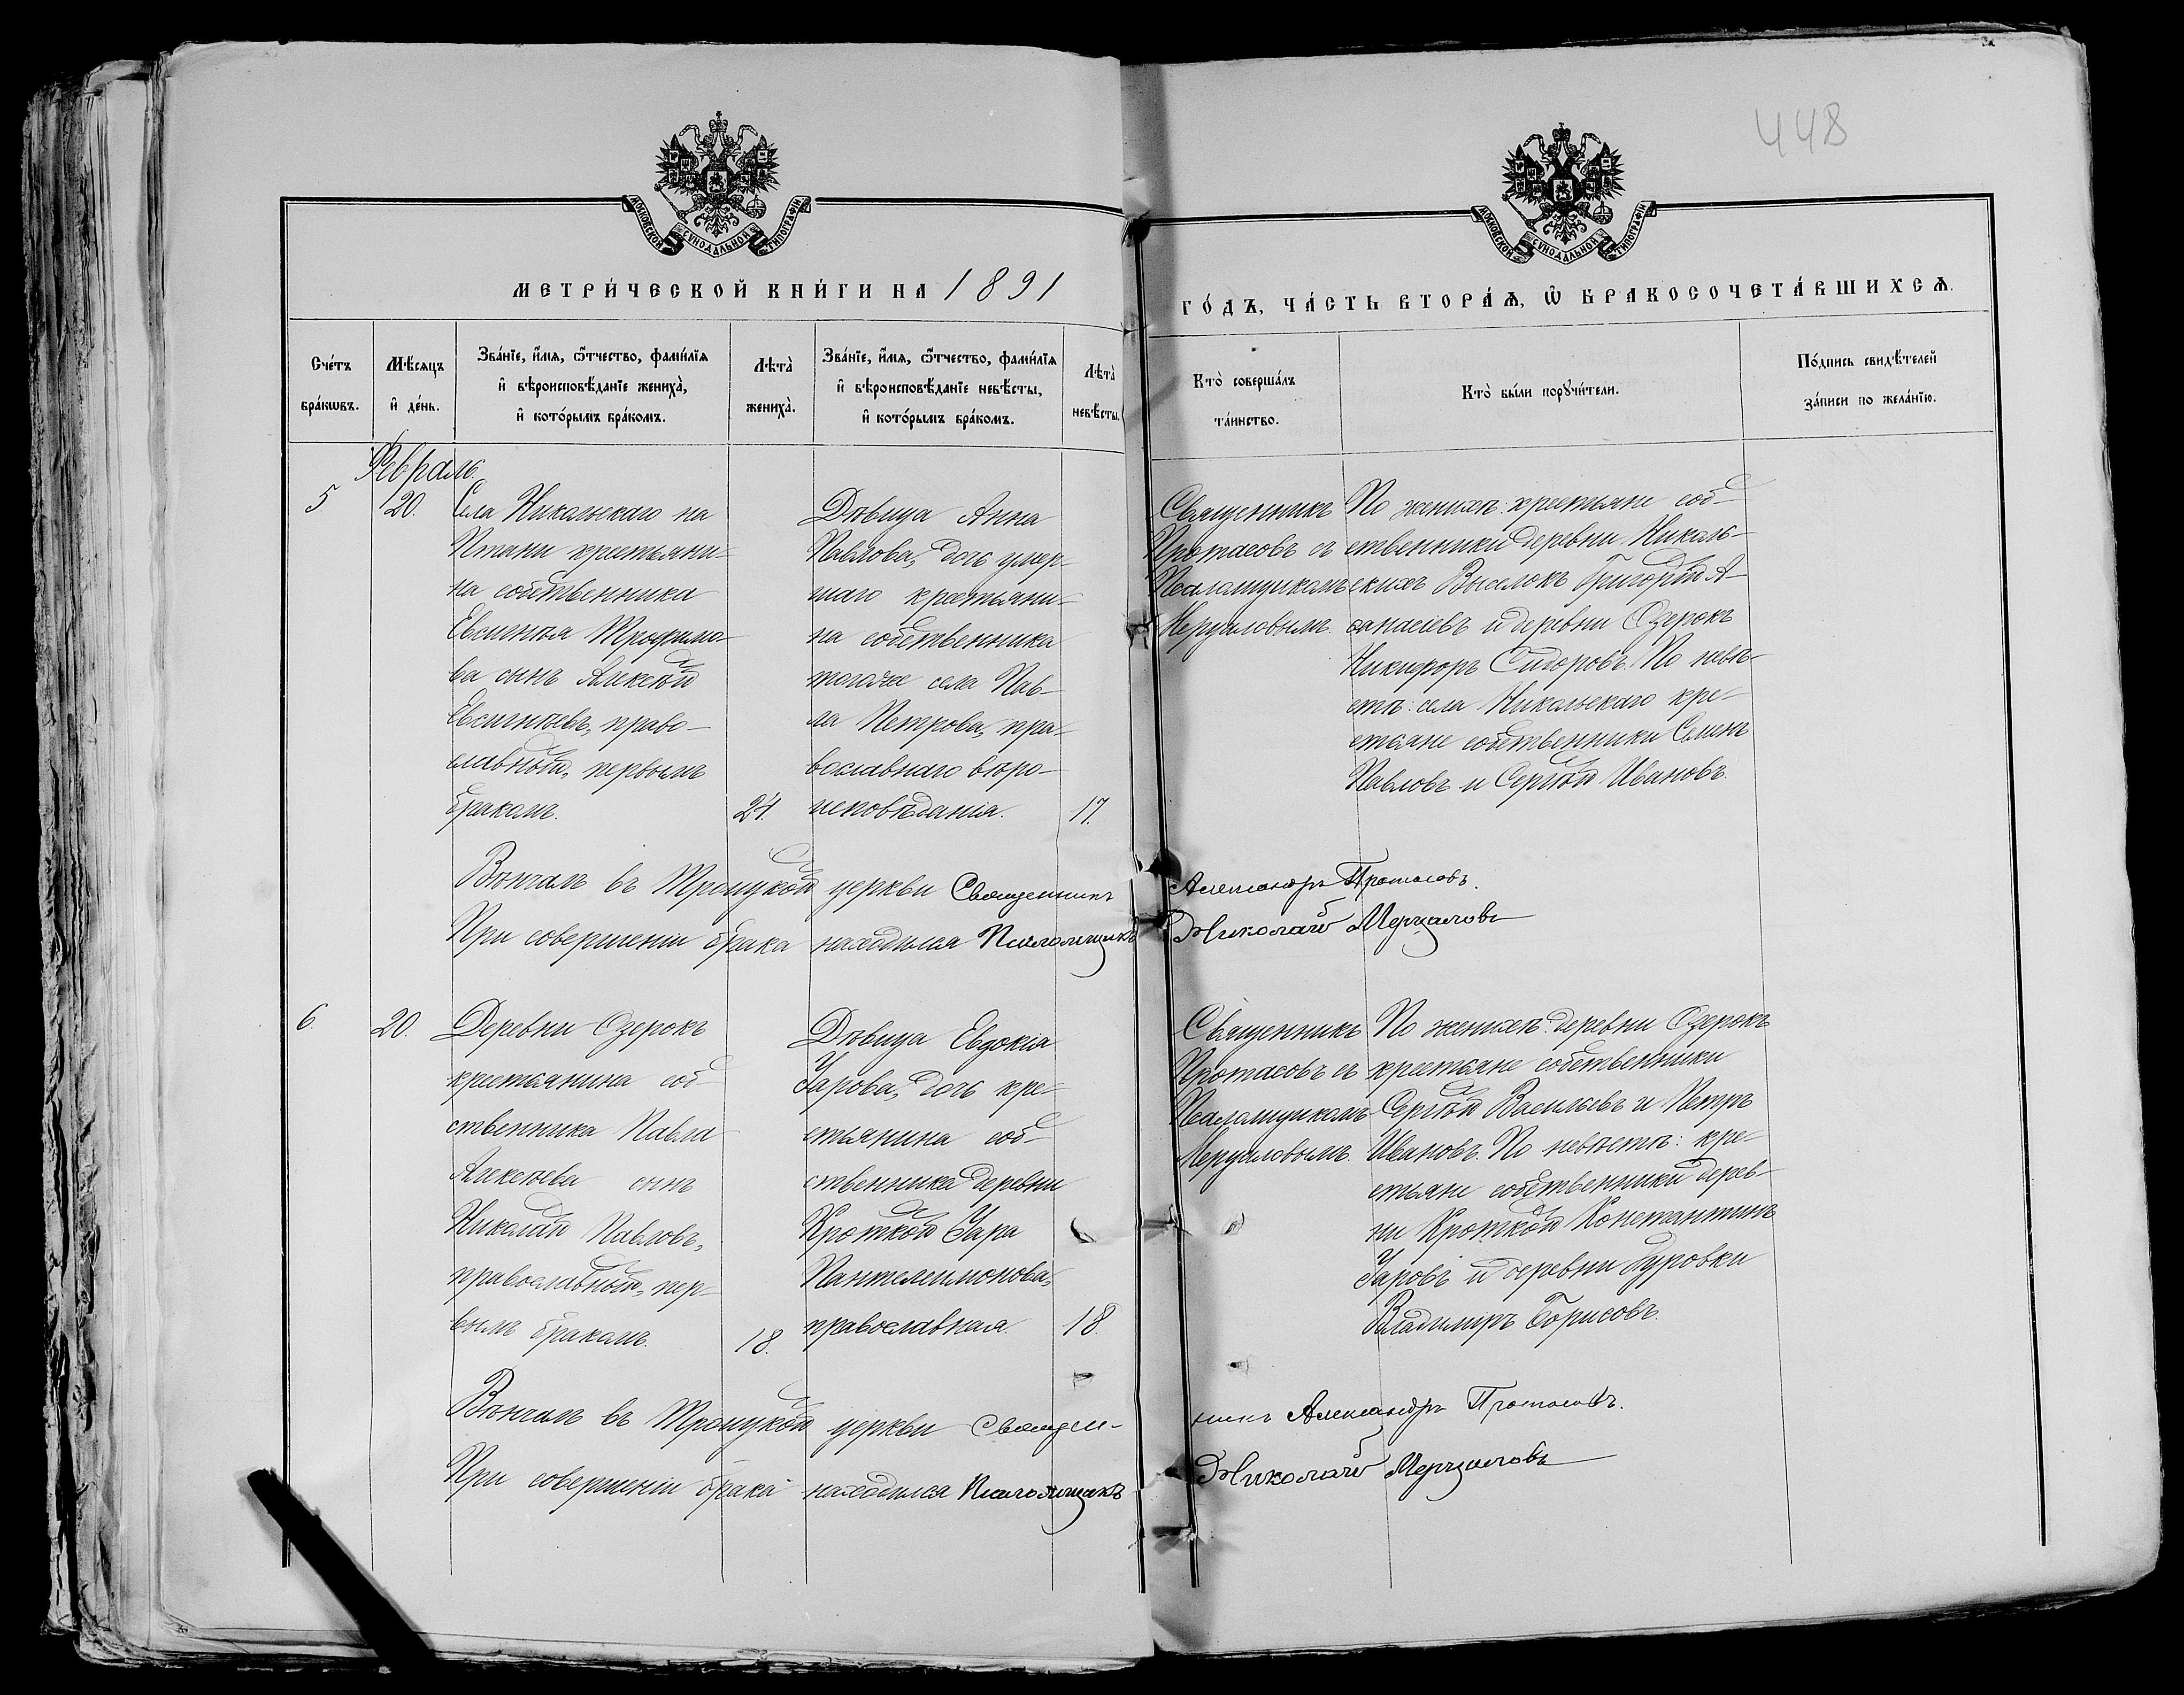 448
МОСКОВСКОЙ СѴНОДАЛЬНОЙ ТИПОГРАФІИ
МОСКОВСКОЙ СѴНОДАЛЬНОЙ ТИПОГРАФІИ
МЕТРИ́ЧЕСКОЙ КНИ́ГИ НА 1891
ГО́ДЪ, ЧА́СТЬ ВТОРА́Ѧ, Ѽ БРАКОСОЧЕТА́ВШИХСѦ.
Сче́тъ
бра́кѡвъ.
Мѣ́сяцъ
и҆ де́нь.
Зва́нїе, и҆́мя, ѻ҆́тчество, фами́лїя
и҆ вѣроисповѣ́данїе жениха̀,
и҆ кото́рымъ бра́комъ.
Лѣта̀
жениха̀.
Зва́нїе, и҆́мя, ѻ҆́тчество, фами́лїя
и҆ вѣроисповѣ́данїе невѣ́сты,
и҆ кото́рымъ бра́комъ.
Лѣта̀
невѣ́сты.
Кто̀ соверша́лъ
та́инство.
Кто̀ бы́ли порꙋчи́тели.
По́дпись свидѣ́телей
за́писи по жела́нїю.
Февраль.
5
20.
Села Никольскаго на
Птани крестьяни-
на собственника
Евсигнѣя Трофимо-
ва сынъ Алексѣй
Евсигнѣевъ, право-
славный, первымъ
бракомъ.
24.
Дѣвица Анна
Павлова, дочь умер-
шаго крестьяни-
на собственника
тогоже села Пав-
ла Петрова, пра-
вославнаго вѣро-
исповѣданія.
17.
Священникъ
Протасовъ съ
Псаломщикомъ
Мерцаловымъ.
По женихѣ: крестьяне соб-
ственники деревни Николь-
скихъ Выселокъ Григорій А-
ѳанасіевъ и деревни Озерокъ
Никифоръ Сидоровъ. По невѣ-
стѣ: села Никольскаго кре-
стьяне собственники Семенъ
Павловъ и Сергѣй Ивановъ.
Вѣнчалъ въ Троицкой церкви Священникъ Александръ Протасовъ.
При совершеніи брака находился Псаломщикъ Николай Мерцаловъ
6.
20.
Деревни Озерокъ
крестьянина соб-
ственника Павла
Алексѣева сынъ
Николай Павловъ,
православный, пер-
вымъ бракомъ.
18.
Дѣвица Евдокія
Уарова, дочь кре-
стьянина соб-
ственника деревни
Кроткой Уара
Пантелеимонова,
православная.
18.
Священникъ
Протасовъ съ
Псаломщикомъ
Мерцаловымъ.
По женихѣ: деревни Озерокъ
крестьяне собственники
Сергѣй Васильевъ и Петръ
Ивановъ. По невѣстѣ: кре-
стьяне собственники дерев-
ни Кроткой Константинъ
Уаровъ и деревни Дуровки
Владиміръ Борисовъ.
Вѣнчалъ въ Троицкой церкви Священ-
никъ Александръ Протасовъ.
При совершеніи брака находился Псаломщикъ Николай Мерцаловъ